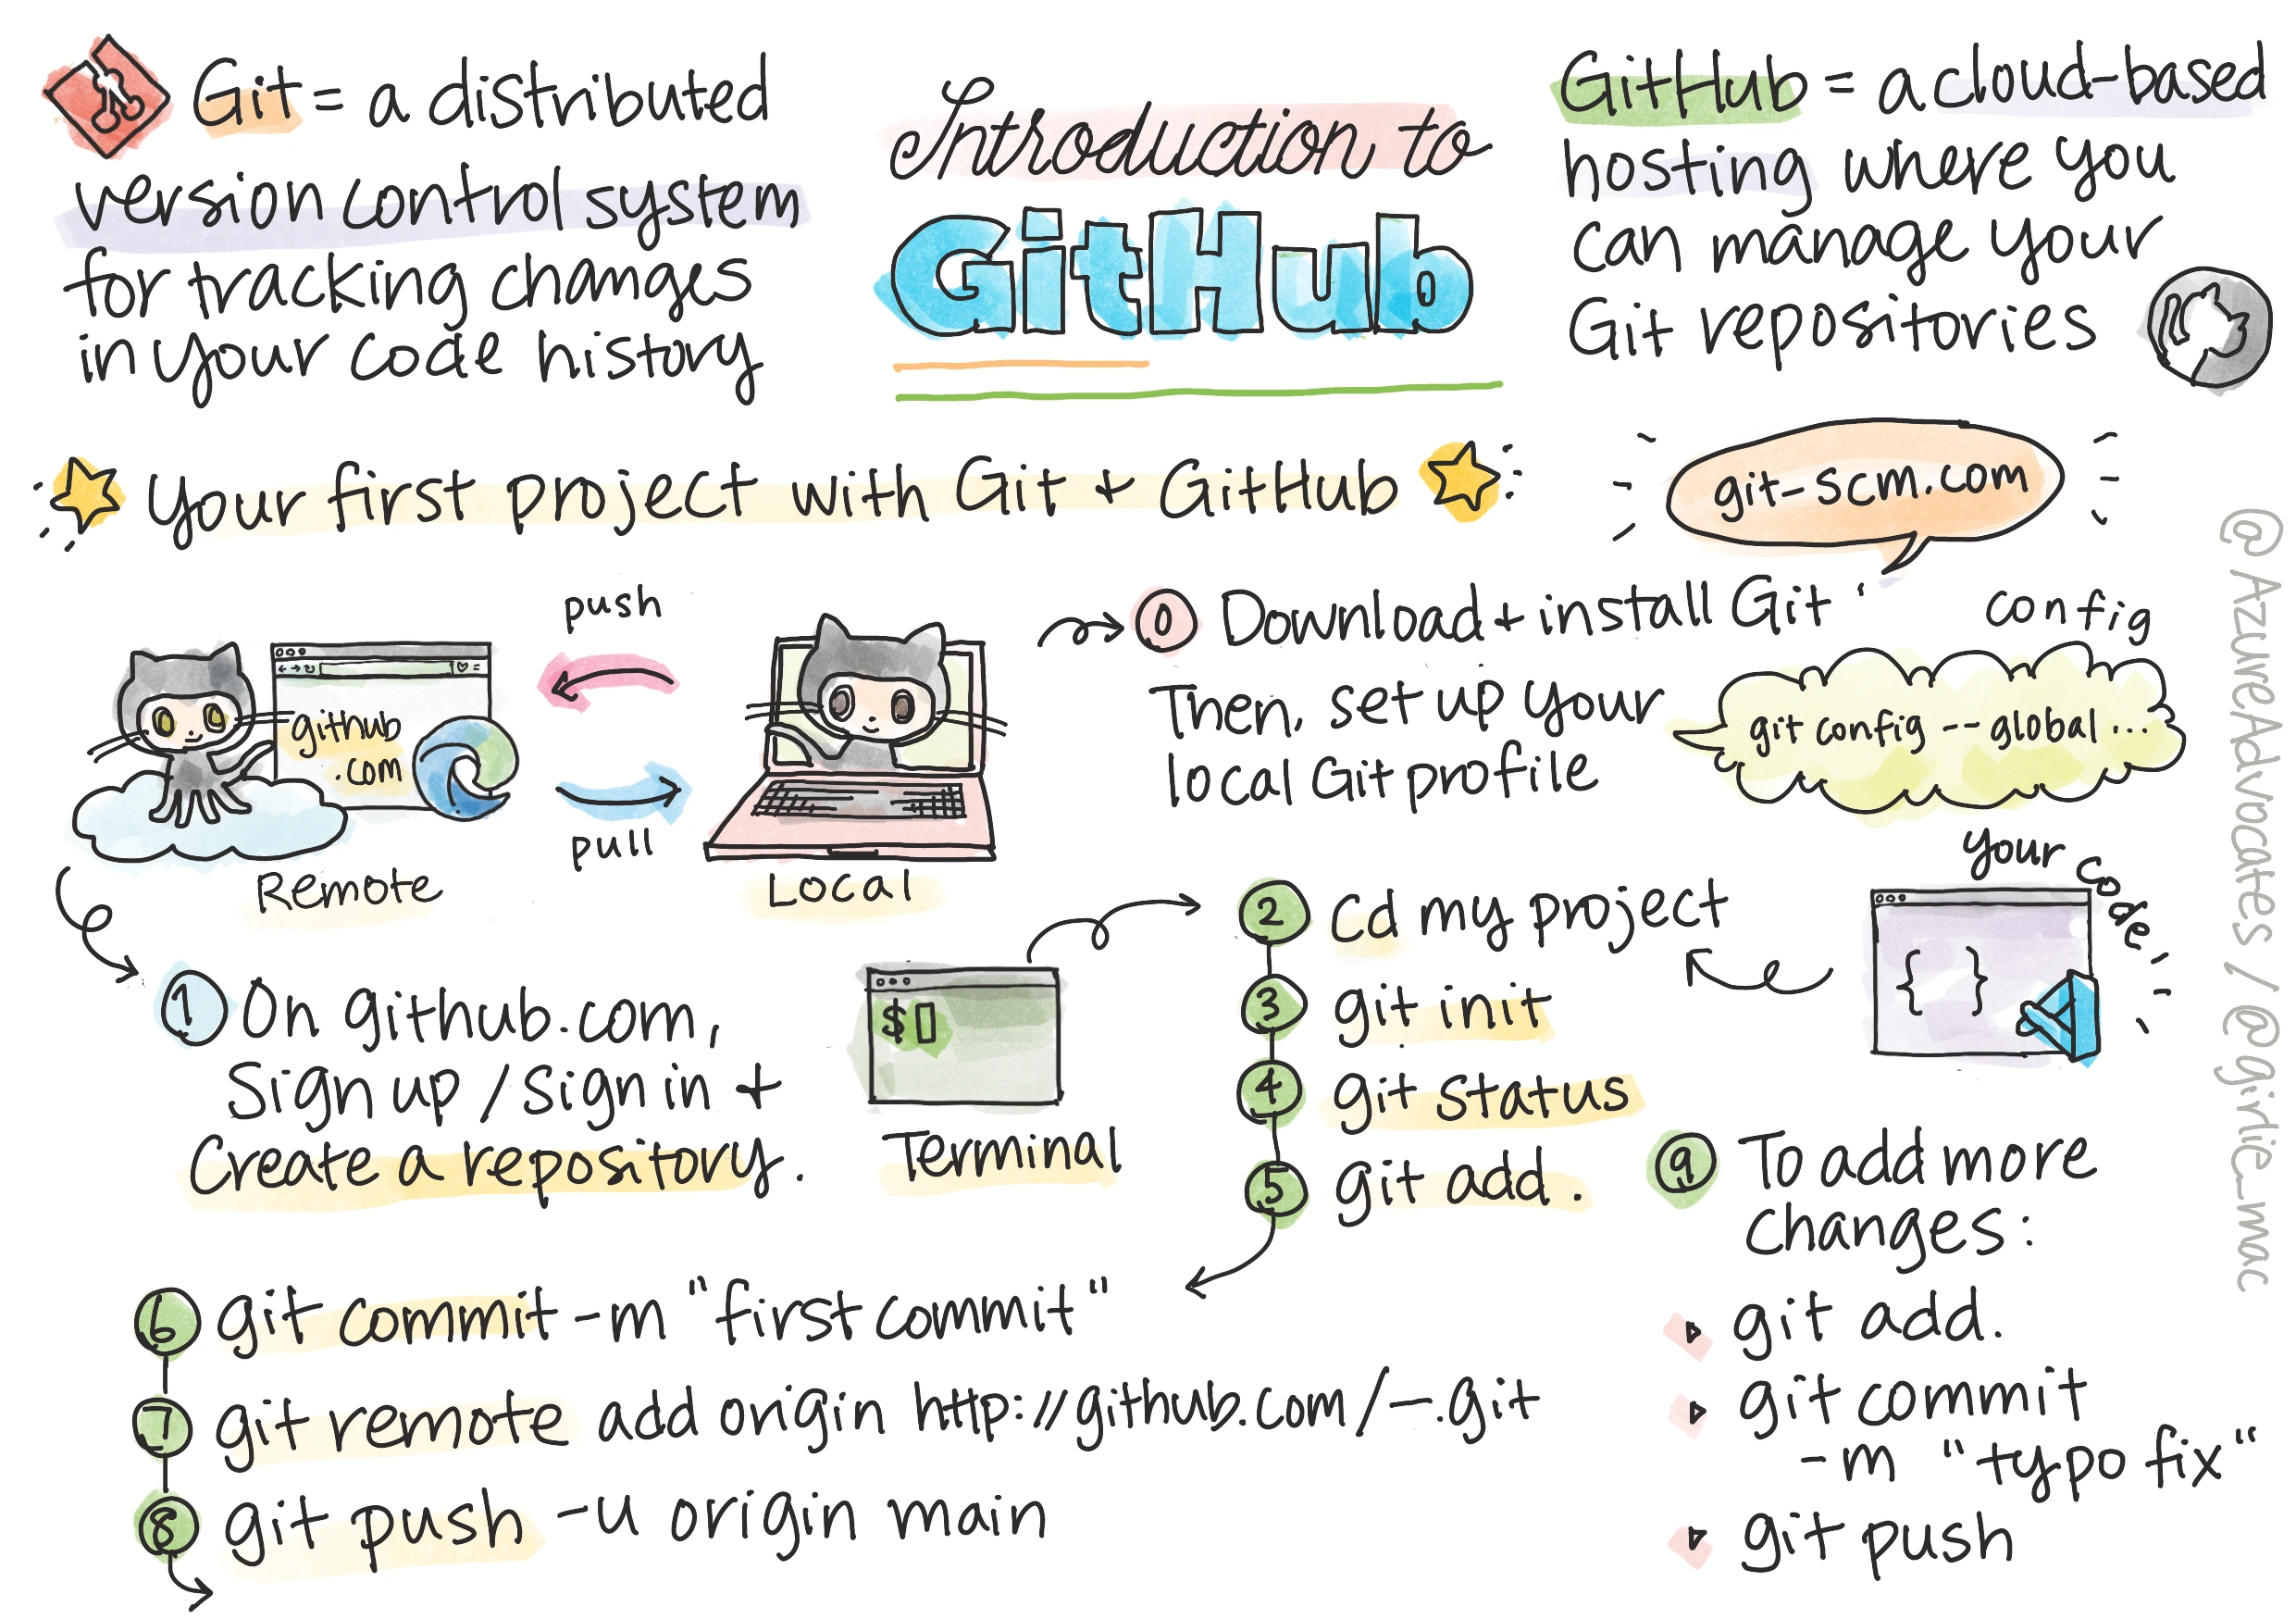 Git = a distributed
version control system
for tracking changes
in your code history
Introduction to
GitHub
GitHub = a cloud-based
hosting where you
can manage your
Git repositories
Your first project with Git + GitHub
git-scm.com
push
github
.com
pull
Remote
Local
0 Download + install Git
Then, set up your
local Git profile
config
git config --global ...
1 On github.com,
Sign up / Sign in +
Create a repository.
$
Terminal
2 cd my project
3 git init
4 git status
5 git add .
your code
{ }
6 git commit -m "first commit"
7 git remote add origin http://github.com/—.git
8 git push -u origin main
9 To add more
changes:
git add.
git commit
-m "typo fix"
git push
@AzureAdvocates / @girlie_mac